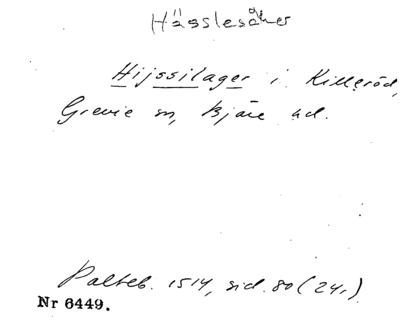 Hässlesåker
Hijssilager i Killeröd,
Grevie sn, Bjäre hd.
Palteb. 1514, sid. 80 (24r)
Nr 6449.